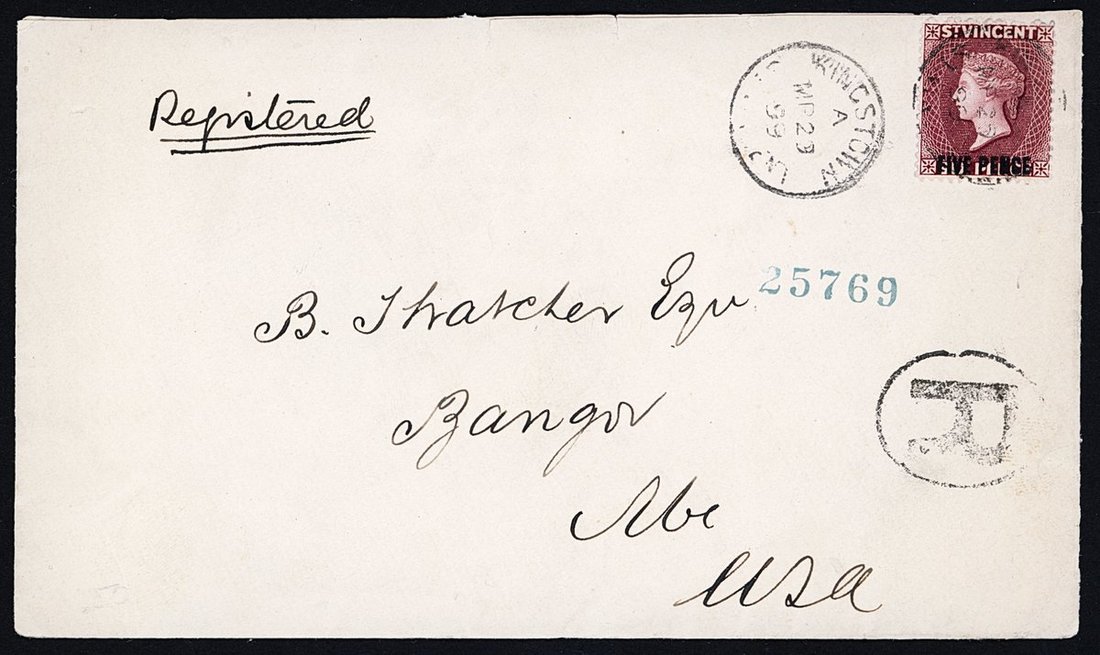 Registered
KINGSTOWN
A
MR 29
99
ST VINCENT
FIVE PENCE
25769
B. Thatcher Esqr
Bangor
Me
USA
R